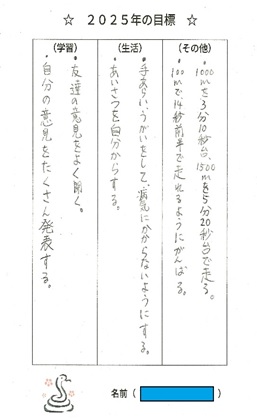 ☆ 2025年の目標 ☆
(学習)
・友達の意見をよく聞く。
・自分の意見をたくさん発表する。
(生活)
・手あらい、うがいをして、病気にかからないようにする。
・あいさつを自分からする。
(その他)
・1000mを3分10秒台、1500mを5分20秒台で走る。
・100mで、14秒前半で走れるようにがんばる。
名前( )